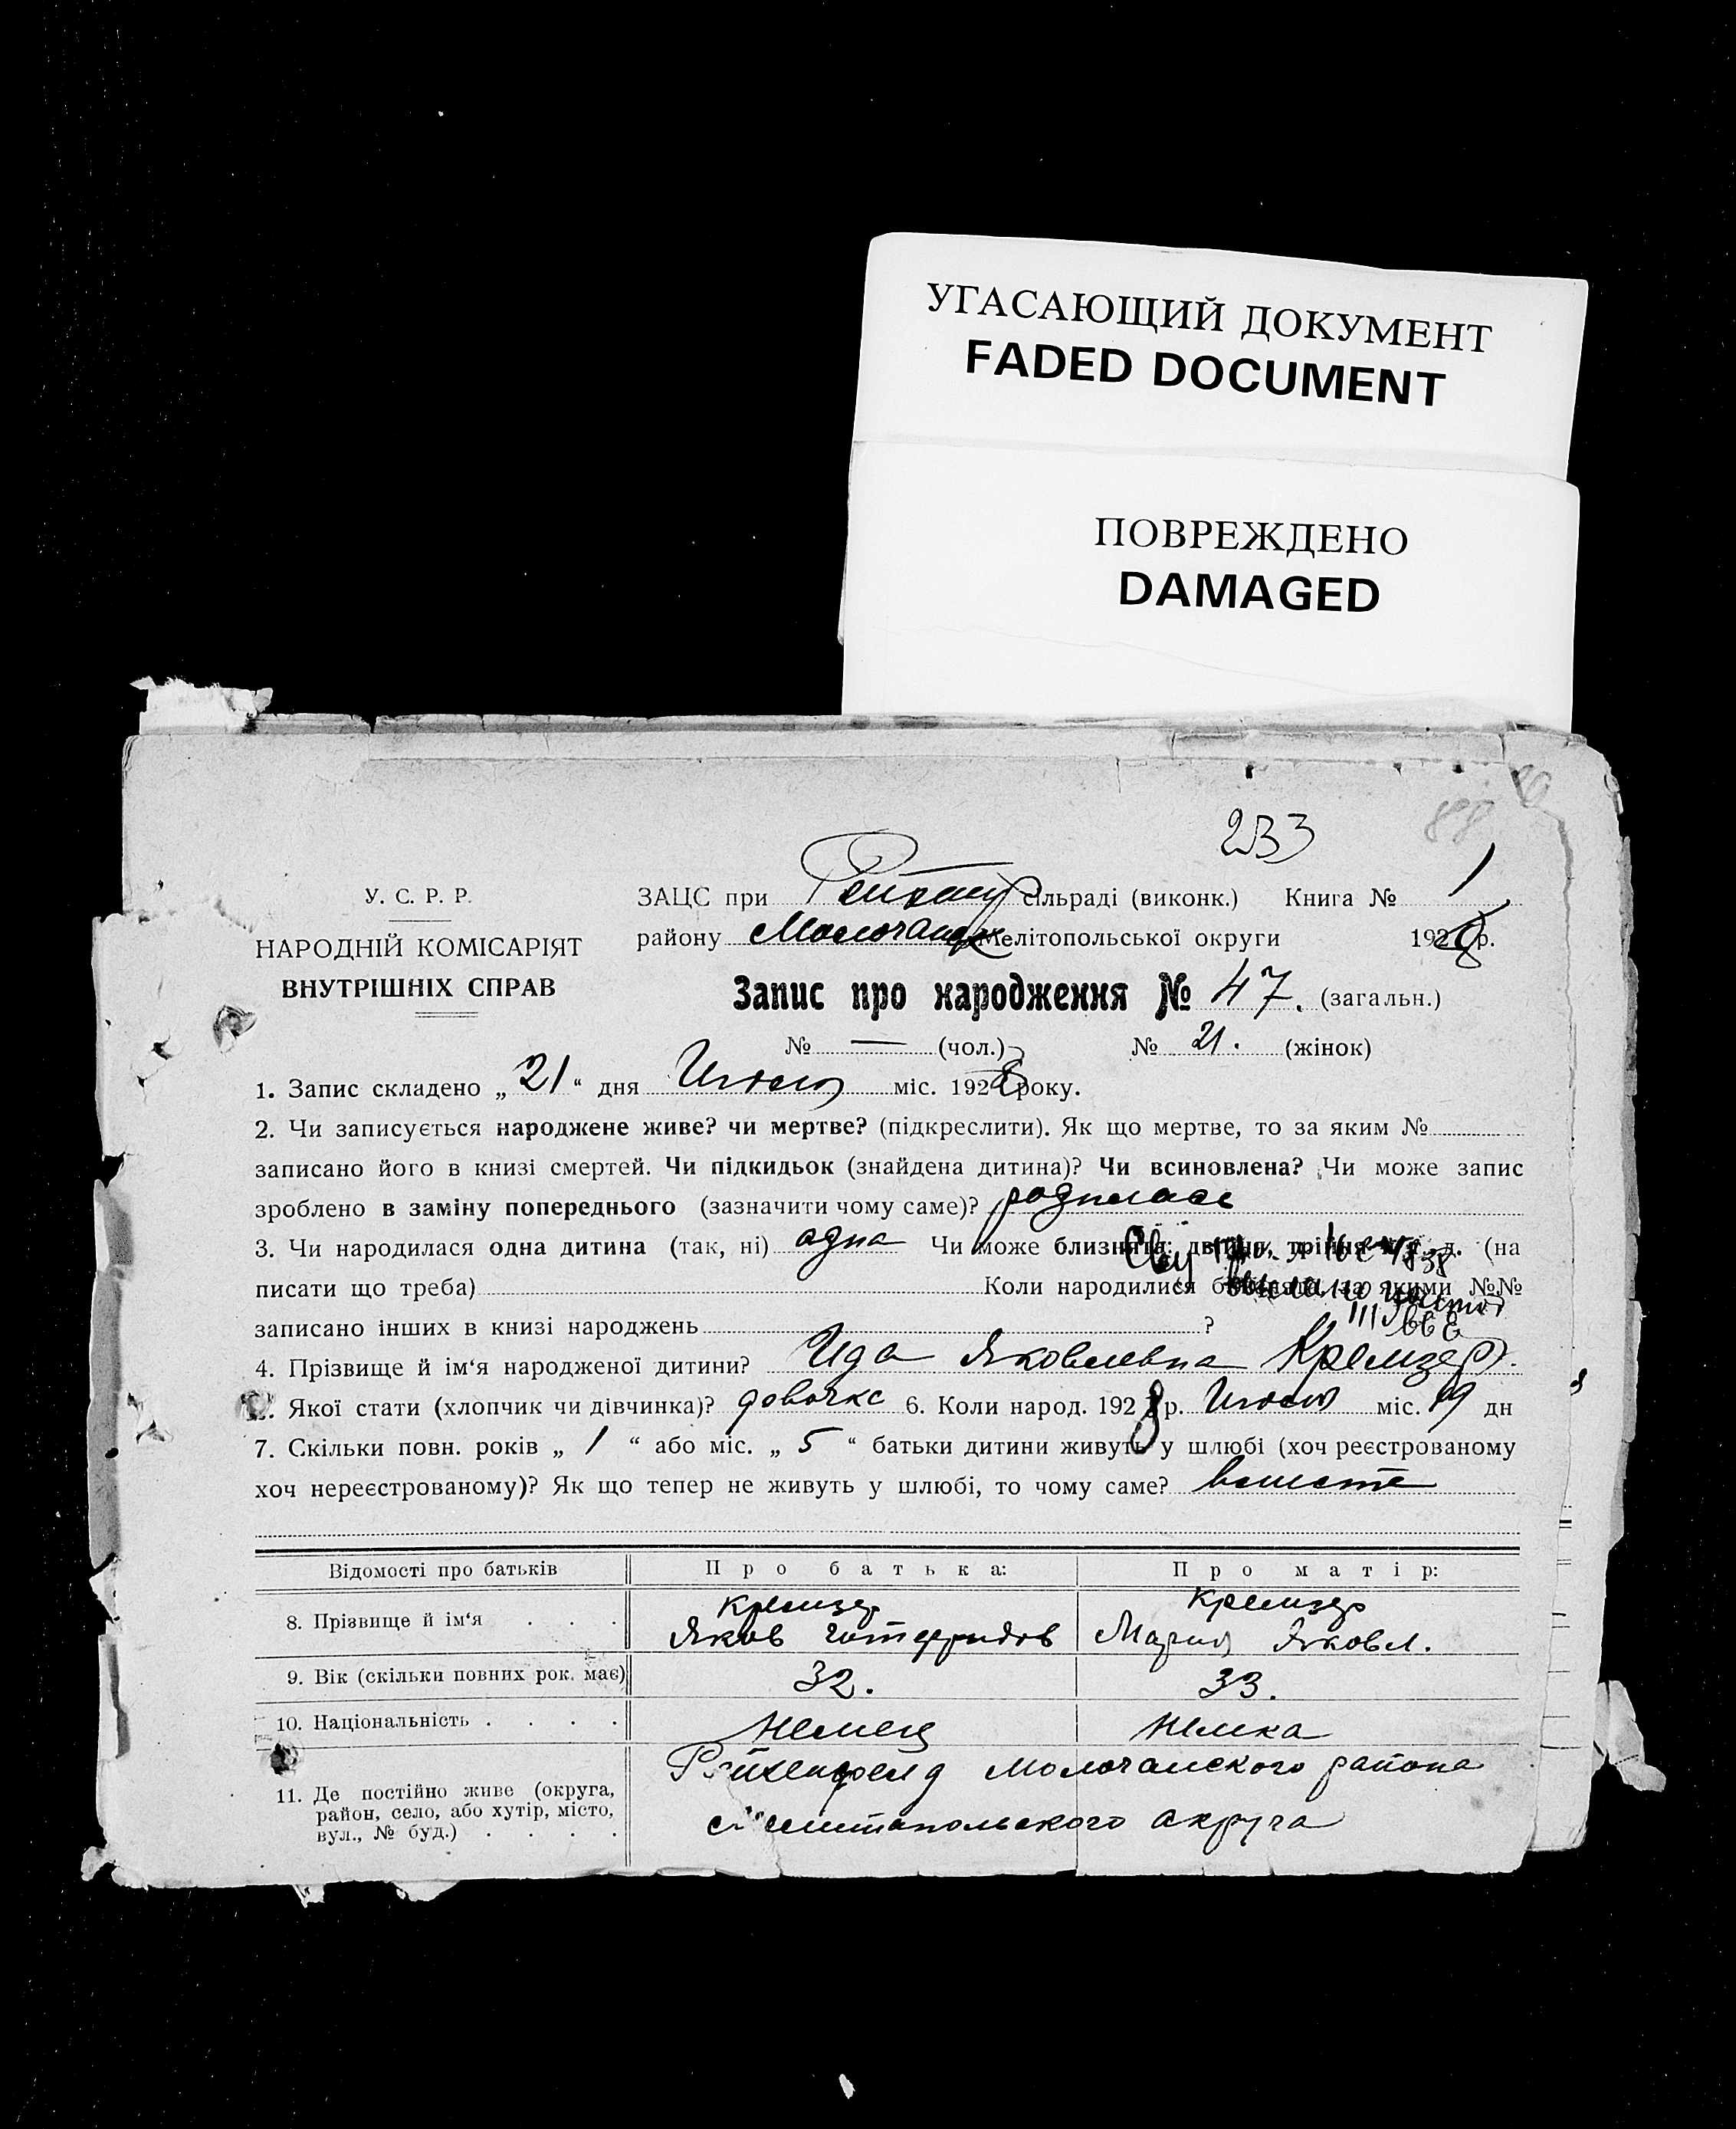 УГАСАЮЩИЙ ДОКУМЕНТ
FADED DOCUMENT
ПОВРЕЖДЕНО
DAMAGED
88
233
У. С. Р. Р.
НАРОДНІЙ КОМІСАРІЯТ
ВНУТРІШНІХ СПРАВ
ЗАЦС при сільраді (виконк.) Книга № 1
району Молочанск Мелітопольської округи 1928 р.
Запис про народження № 47. (загальн.)
№ — (чол.) № 21. (жінок)
1. Запис складено „ 21 “ дня Июля міс. 1928 року.
2. Чи записується народжене живе? чи мертве? (підкреслити). Як що мертве, то за яким №
записано його в книзі смертей. Чи підкидьок (знайдена дитина)? Чи всиновлена? Чи може запис
зроблено в заміну попереднього (зазначити чому саме)? родилась
3. Чи народилася одна дитина (так, ні) одна Чи може близнята: двійня, трійня и т. д. (на
писати що треба) Коли народилися близнята, за якими №№
записано інших в книзі народжень ?
4. Прізвище й ім‘я народженої дитини? Ида Яковлевна Кремзер.
5. Якої стати (хлопчик чи дівчинка)? девочка 6. Коли народ. 1928 р. Июля міс. 19 дн
7. Скільки повн. років „ 1 “ або міс. „ 5 “ батьки дитини живуть у шлюбі (хоч реєстрованому
хоч нереєстрованому)? Як що тепер не живуть у шлюбі, то чому саме? вместе
Відомості про батьків Про батька: Про матір:
8. Прізвище й ім‘я . . . Кремзер Яков Готфридов Кремзер Мария Яковл.
9. Вік (скільки повних рок. має) 32. 33.
10. Національність . . . . Немец Немка
11. Де постійно живе (округа, Рейхенфелд Молочанского района
район, село, або хутір, місто,
вул., № буд.) . . . . Мелитопольского округа